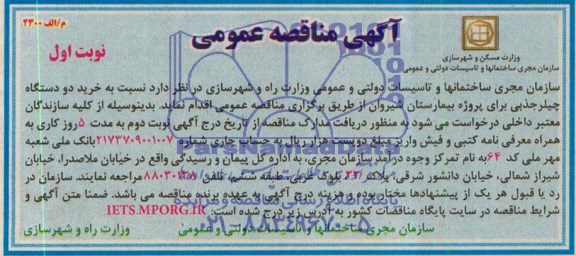 م/الف ۲۳۰۰
آگهی مناقصه عمومی
نوبت اول
وزارت مسکن و شهرسازی
سازمان مجری ساختمانها و تاسیسات دولتی و عمومی
سازمان مجری ساختمانها و تاسیسات دولتی و عمومی وزارت راه و شهرسازی در نظر دارد نسبت به خرید دو دستگاه
چیلر جذبی برای پروژه بیمارستان شیروان از طریق برگزاری مناقصه عمومی اقدام نماید. بدینوسیله از کلیه سازندگان
معتبر داخلی درخواست می شود به منظور دریافت مدارک مناقصه از تاریخ درج آگهی نوبت دوم به مدت ۵ روز کاری به
همراه معرفی نامه کتبی و فیش واریز مبلغ دویست هزار ریال به حساب جاری شماره ۲۱۷۳۷۰۹۰۰۱۰۰۷ بانک ملی شعبه
مهر ملی کد ۶۴ به نام تمرکز وجوه درآمد سازمان مجری، به اداره کل پیمان و رسیدگی واقع در خیابان ملاصدرا، خیابان
شیراز شمالی، خیابان دانشور شرقی، پلاک ۲۳ بلوک غربی، طبقه ششم، تلفن مراجعه نمایند. سازمان در
رد یا قبول هر یک از پیشنهادها مختار بوده و هزینه درج آگهی به عهده برنده مناقصه می باشد. ضمنا متن آگهی و
شرایط مناقصه در سایت پایگاه مناقصات کشور به آدرس زیر درج شده است: IETS.MPORG.IR
سازمان مجری ساختمانها و تاسیسات دولتی و عمومی وزارت راه و شهرسازی